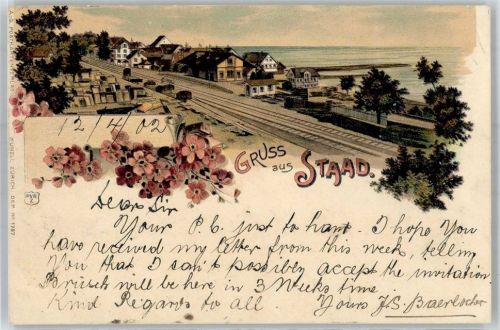 12/4/02
GRUSS aus STAAD.
Dear Sir
Your P.C. just to hand. I hope You
have received my letter from this week, telling
You that I can't possibly accept the invitation
Brüsch will be here in 3 Weeks time.
Kind Regards to all. Yours J.S. Baerlocher